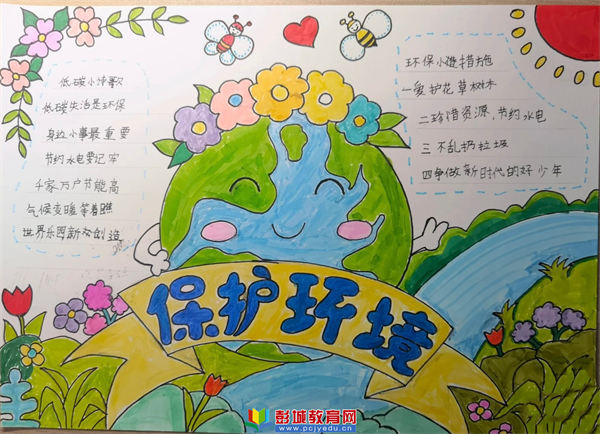 低碳小诗歌
低碳生活是环保
身边小事最重要
节约水电要记牢
千家万户节能高
气候变暖等着瞧
世界乐园新欢创造
环保小谜措施
一爱护花草树木
二珍惜资源,节约水电
三 不乱扔垃圾
四争做新时代的好少年
保护环境
彭城教育网
www.pcjyedu.cn